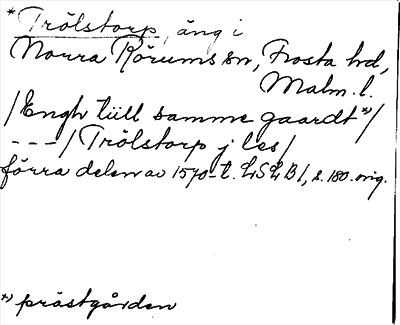 *Trölstorp, äng i
Norra Rörums sn, Frosta hd,
Malm. l.
/Engh tiill samme gaardt*)/
---/Trölstorp j les/
förra delen av 1570-t. LSLB1, s. 180. orig.
*) prästgården